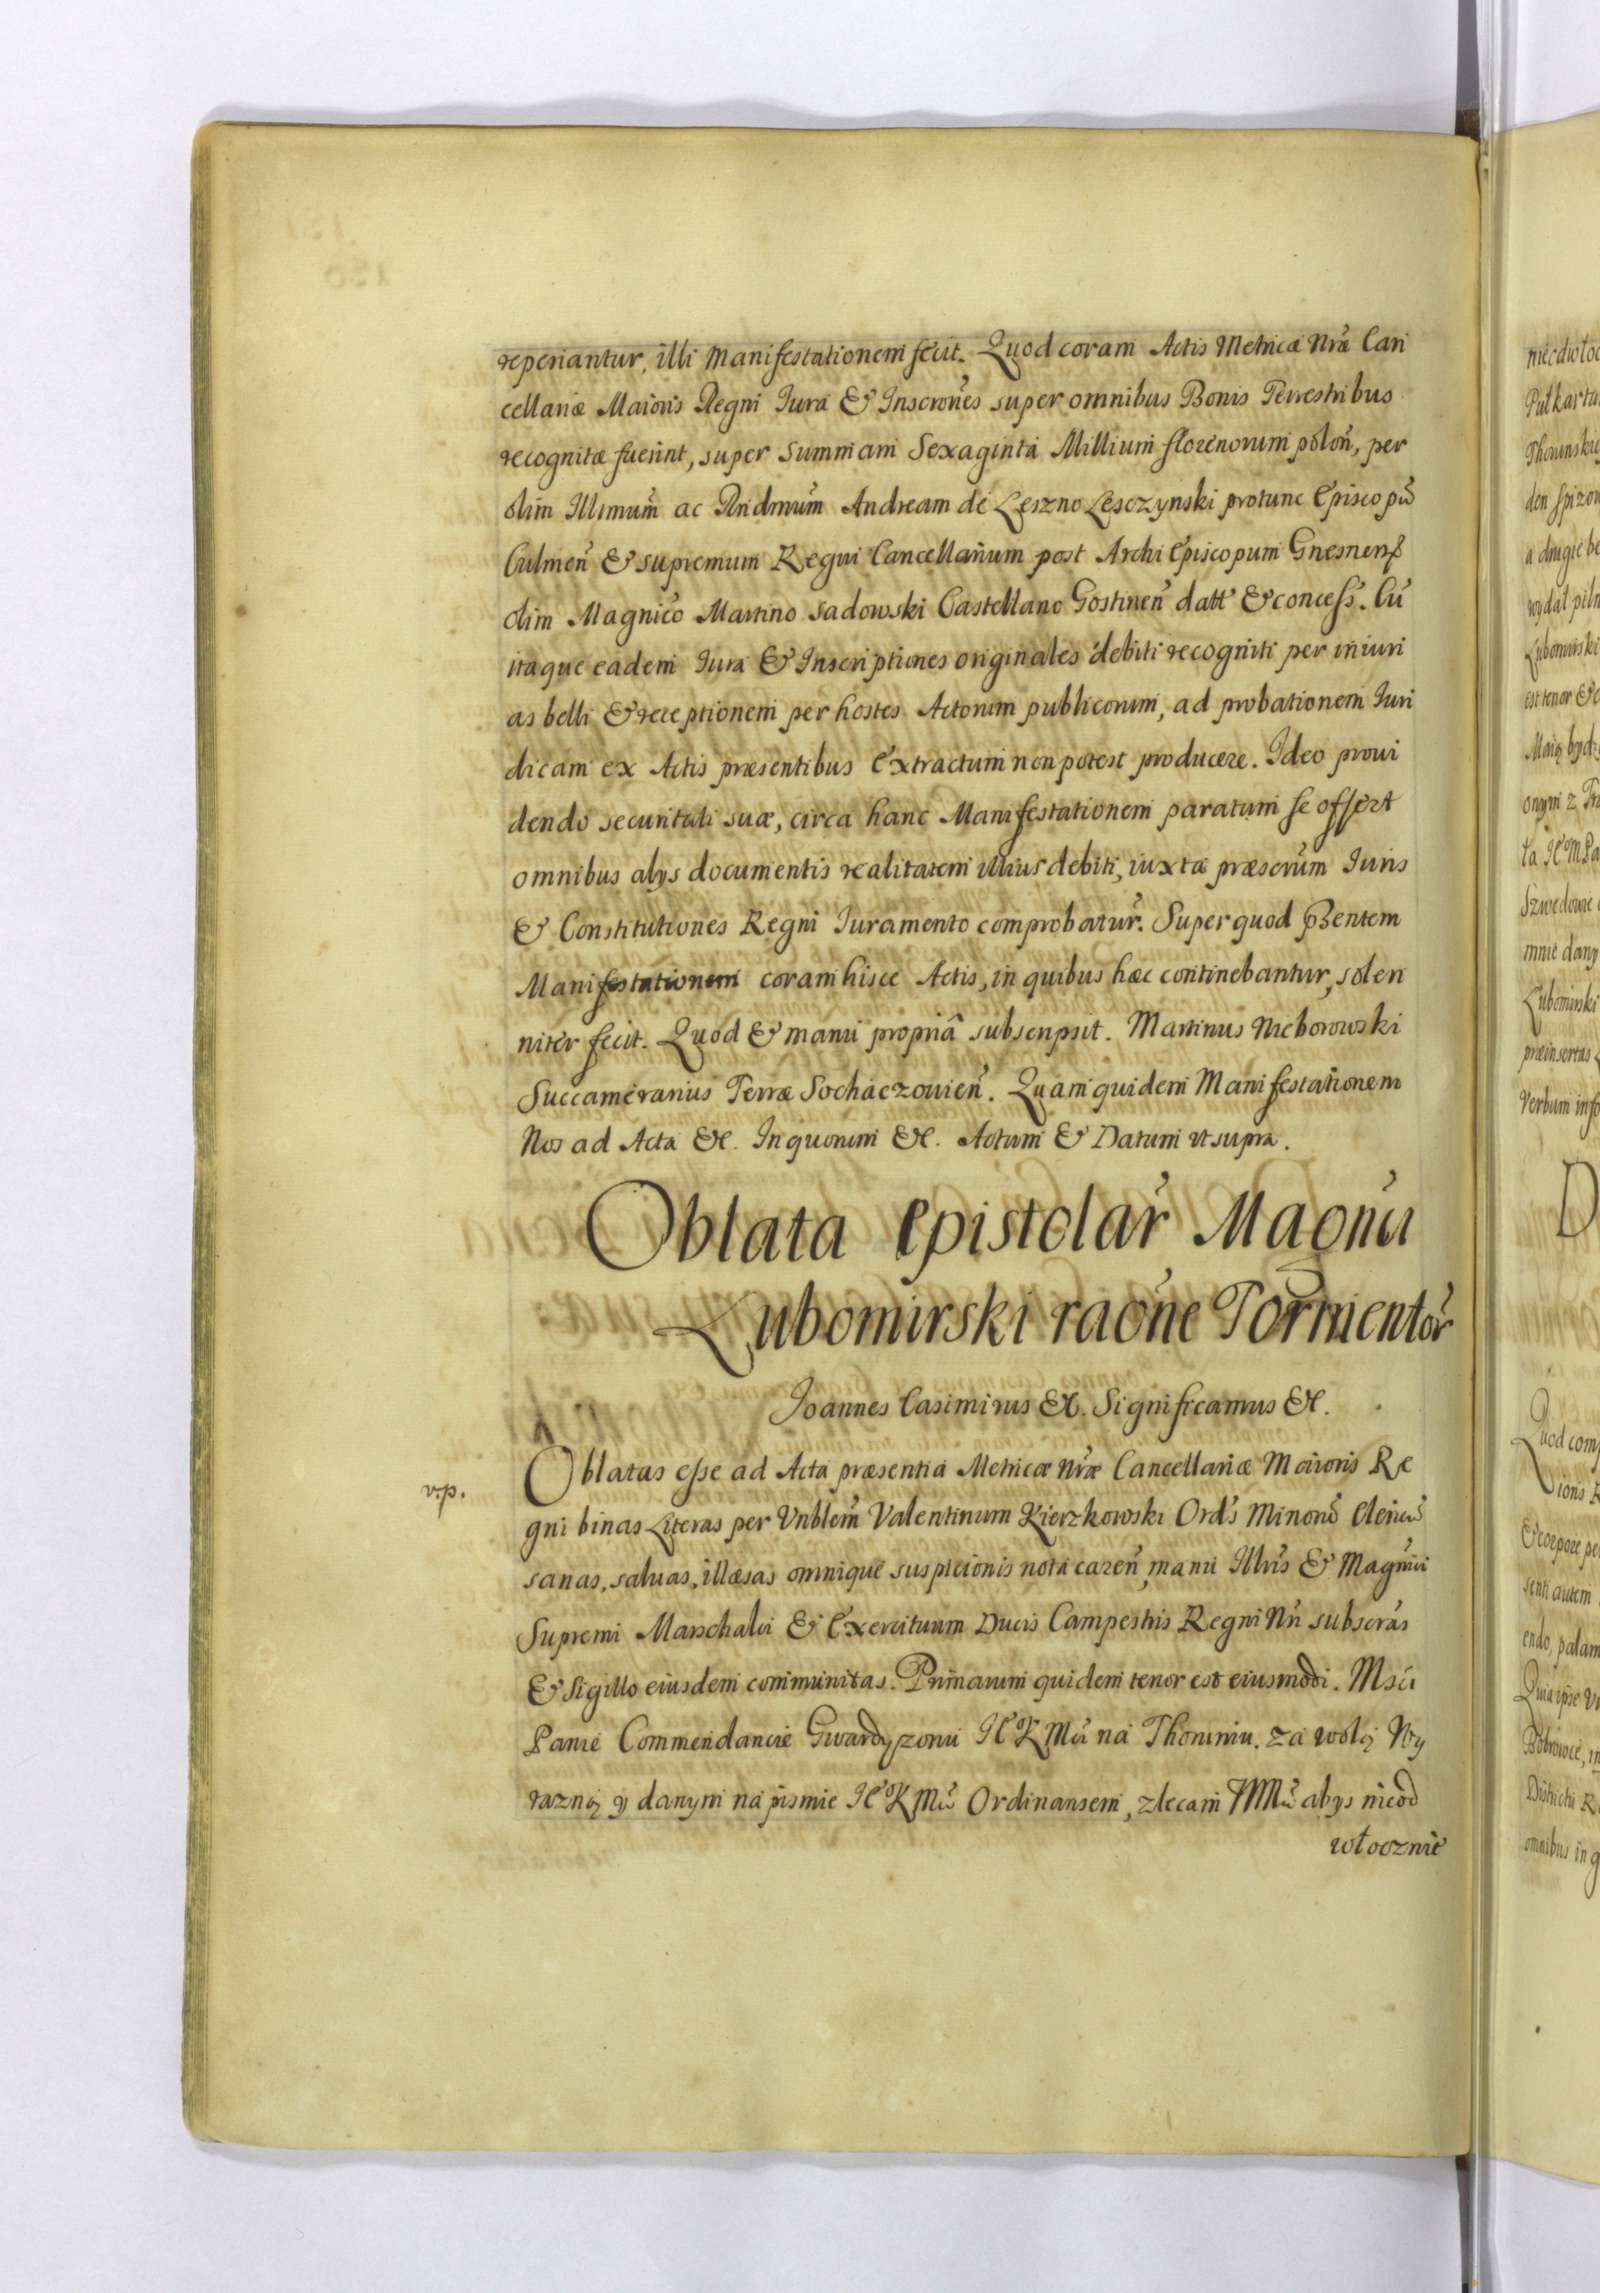 reperiantur, illi Manifestationem fecit. Quod coram Actis Metricæ Nræ Can
cellariæ Maioris Regni Iura & Inscrones super omnibus Bonis Terrestribus
recognitæ fuerint, super Summam Sexaginta Millium florenorum polon, per
olim Illmum ac Rndmum Andream de Leszno Lesczynski protunc Episcopu
Culmen & supremum Regni Cancellarium post Archi Episcopum Gnesnens
olim Magnico Martino Sadowski Castellano Gostinen datt & concess. Cu
itaque eadem Iura & Inscriptiones originales debiti recogniti per iniuri
as belli & receptionem per hostes Actorum publicorum, ad probationem Iuri
dicam ex Actis præsentibus Extractum non potest producere. Ideo proui
dendo securitati suæ, circa hanc Manifestationem paratum se offert
omnibus alys documentis realitatem illius debiti, iuxta præscrum Iuris
& Constitutiones Regni Iuramento comprobatur. Super quod pntem
Manifestationem coram hisce Actis, in quibus hæc continebantur, solen
niter fecit. Quod & manu propriâ subscripsit. Martinus Nieborowski
Succamerarius Terræ Sochaczouien. Quam quidem Manifestationem
Nos ad Acta &c. In quorum &c. Actum & Datum vt supra.
Oblata Epistolar Magnci
Lubomirski raone Tormentor
Ioannes Casimirus &c. Significamus &c.
v.p.
Oblatas esse ad Acta præsentia Metricæ Nræ Cancellariæ Maioris Re
gni binas Literas per Vnblem Valentinum Kierzkowski Ords Minoru Clericu
sanas, saluas, illæsas omnique suspicionis nota caren, manu Illris & Magnici
Supremi Marschalci & Exercituum Ducis Campestris Regni Nri subscras
& Sigillo eiusdem communitas. Primarum quidem tenor est eiusmodi. Msci
Panie Commendancie Gwardyzonu IE°K Mci na Thoruniu. za wolą Wy
razną y danym na pismie IE°K Mci Ordinansem, zlecam WMci abys nieod
włocznie
niecdwłoc
Putkarta
Thorunskie
den spizow
a drugie be
wydał piln
Lubomirski
est tenor &c
onym z Tho
ta IE°M Pa
Szwedowie
mnie dany
Lubomirski
præinsertas
Verbum info
D
Quod comp
ionis R
& corpore pe
senti autem
endo, palam
Quia ipse
Districtu R
omnibus in g